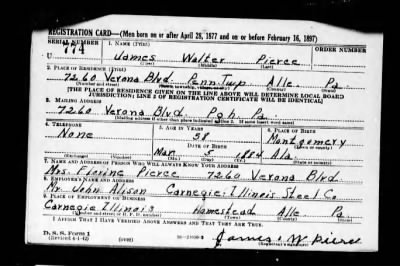 REGISTRATION CARD—(Men born on or after April 28, 1877 and on or before February 16, 1897)
SERIAL NUMBER 1. NAME (Print) ORDER NUMBER
U 774 James Walter Pierce
(First) (Middle) (Last)
2. PLACE OF RESIDENCE (Print)
7260 Verona Blvd. Penn Twp. Alle. Pa.
[THE PLACE OF RESIDENCE GIVEN ON THE LINE ABOVE WILL DETERMINE LOCAL BOARD
JURISDICTION; LINE 2 OF REGISTRATION CERTIFICATE WILL BE IDENTICAL]
3. MAILING ADDRESS
7260 Verona Blvd. Pgh. Pa.
[Mailing address if other than place indicated on line 2. If same insert word same]
4. TELEPHONE 5. AGE IN YEARS 6. PLACE OF BIRTH
None 58 Montgomery
DATE OF BIRTH (Town or county)
Mar. 5 1884 Ala.
(Exchange) (Number) (Mo.) (Day) (Yr.) (State or country)
7. NAME AND ADDRESS OF PERSON WHO WILL ALWAYS KNOW YOUR ADDRESS
Mrs. Florine Pierce 7260 Verona Blvd.
8. EMPLOYER'S NAME AND ADDRESS
Mr. John Alison Carnegie-Illinois Steel Co.
9. PLACE OF EMPLOYMENT OR BUSINESS
Carnegie Illinois Homestead Alle. Pa
(Number and street or R. F. D. number) (Town) (County) (State)
I AFFIRM THAT I HAVE VERIFIED ABOVE ANSWERS AND THAT THEY ARE TRUE.
D. S. S. Form 1
(Revised 4-1-42) (over) James W Pierce
(Registrant's signature)